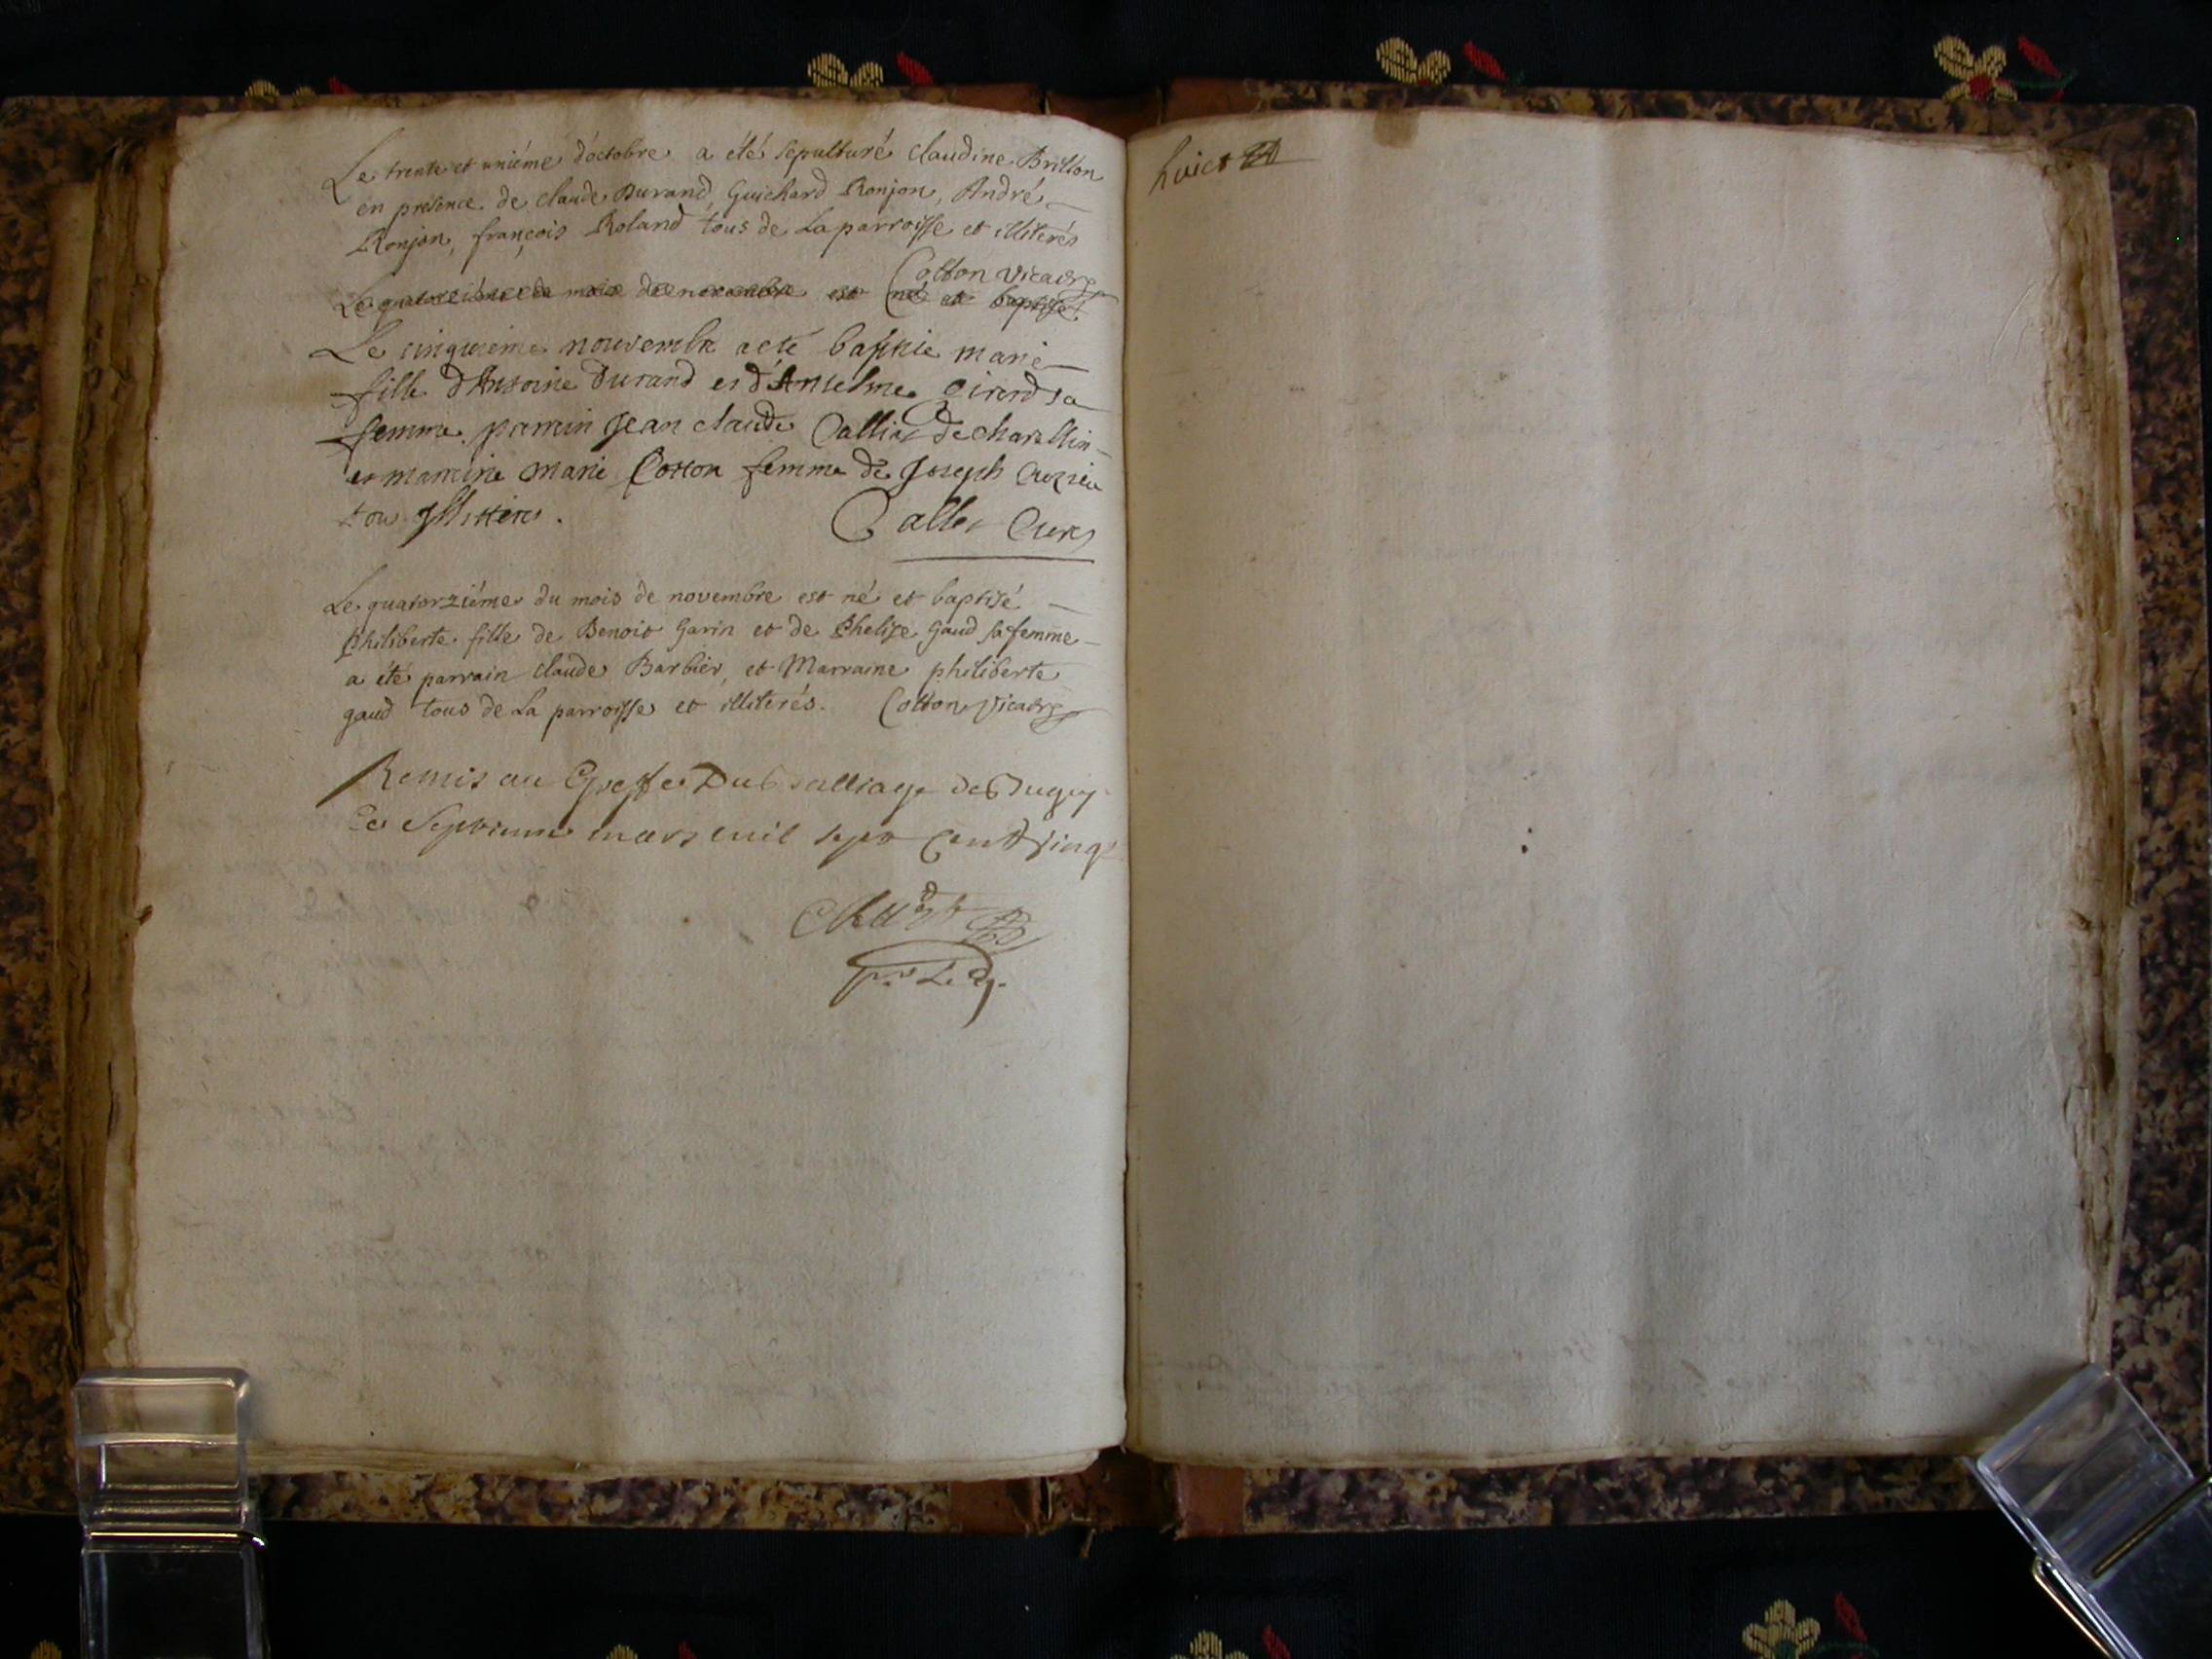 Le trente et uniéme d'octobre a été sepulturé claudine Britton
en présence de claude Durand, Guichard Ronjon, André
Ronjon, françois Roland tous de La parroisse et illiterés
Cotton vicaire
Le quatorziéme du mois de novembre est né et baptisé
Le cinquieme nouvembre a eté baptisé marie
fille d'Antoine Durand et d'Anselme Girard sa
femme parrain Jean claude Callier de
et marraine marie Cotton femme de Joseph
tous Illiteres. Callier Curé
Le quatorziéme du mois de novembre est né et baptisé
Philiberte fille de Benoit Garin et de Phelise Gaud sa femme
a été parrain claude Barbier, et Marraine philiberte
gaud tous de La parroisse et illiterés. Cotton Vicaire
Remis au Greffe Du Balliage de Bugey
Ce Septieme mars mil sept Cent vingt
huict